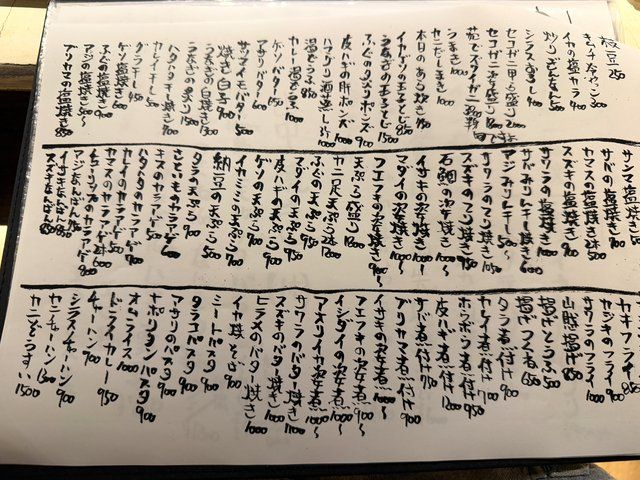 枝豆 250
キムチ 300
イカの塩カラ 400
炒りぎんなん 500
シラスおろし 400
セコガニ甲ら盛り
茹でズワイガニ
うまき 1000
カニだしまき 1000
本日のあら炊き 950
イカゲソの玉子とじ 850
うなぎの玉子とじ 1500
ふぐのタタキポン酢 900
皮ハギの肝ポン酢 1000
ハマグリ酒蒸し
温どうふ 850
カレー温どうふ 1000
ゲソバター 650
アサリバター 600
サツマイモバター 500
焼き白子 900
うなぎの白焼き 1300
うなぎの タレ焼き 1500
ハタハタ一夜干し 700
カレイ干し 500
グラ干し 500
ゲソ塩焼き 600
ふぐの塩焼き 900
アジの塩焼き 500〜
ブリカマの塩焼き 850
サンマの塩焼き
サバの塩焼き 700
カマスの塩焼き 2本 500
スズキの塩焼き 900
サワラの塩焼き 1000
サバみりん干し 600
アジみりん干し 500〜
サワラのタレ焼き 1050
スズキのタレ焼き 950
石鯛の姿焼き 1000〜
イサキの姿焼き 1000〜
マダイの姿焼き 1000〜
フエフキの姿焼き 900〜
天ぷら盛り 1300
カニ足天ぷら 1200
ふぐの天ぷら 950
マダイの天ぷら 950
皮ハギの天ぷら 900
ゲソの天ぷら 700
イカミミの天ぷら 700
納豆の天ぷら 500
タラの天ぷら 900
さといものカラアゲ 600
キスのカラアゲ 500
ハタハタのカラアゲ 700
カレイのカラアゲ 500
カマスのカラアゲ 2本 600
チューリップのカラアゲ 800
アジなんばん 750
イサキなんばん 850
スズキなんばん 850
カキフライ 850
ヤンキのフライ 900
サワラのフライ 1000
山芋揚げ 850
揚げどうふ 500
揚げつくね 650
タラ煮付け 900
カレイ煮付け 700
ホウボウ煮付け 950
皮ハギ煮付け 1200
サバ煮付け 750
ブリカマ煮付け 900
イサキの姿煮 1000〜
フエフキの姿煮 900〜
イシダイの姿煮 1000〜
アオリイカ姿煮 1000〜
サワラのバター焼き 1100
スズキのバター焼き 1000
ヒラメのバター焼き 1000
イカ焼そば 900
ミートパスタ 900
タラコパスタ 900
アサリのパスタ 900
ナポリタンパスタ 900
オムライス 1000
ドライカレー 950
チャーハン 900
シラスチャーハン 900
カニチャーハン 1300
カニぞうすい 1500